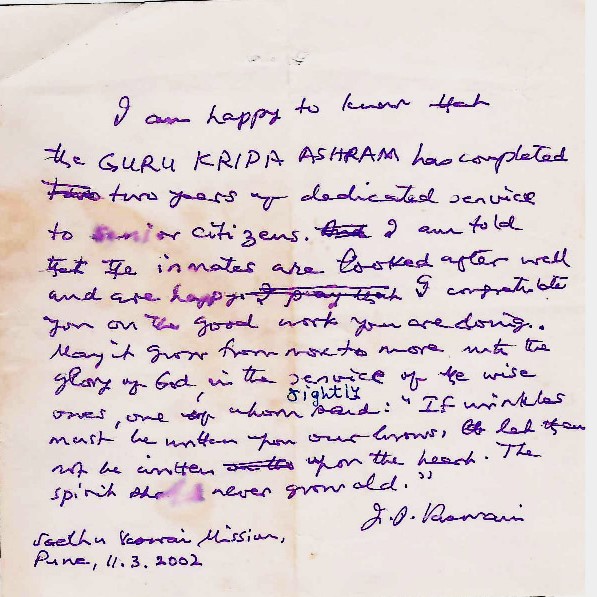 I am happy to know that
the GURU KRIPA ASHRAM has completed
two years of dedicated service
to senior citizens. I am told
that the inmates are looked after well
and are happy. I pray that I congratulate
you on the good work you are doing..
May it grow from more to more with the
glory of God, in the service of the wise
rightly
ones, one of whom said: "If wrinkles
must be written upon our brows, let them
not be written upon the heart. The
spirit should never grow old."
J. P. Vaswani
Sadhu Vaswani Mission,
Pune, 11.3.2002